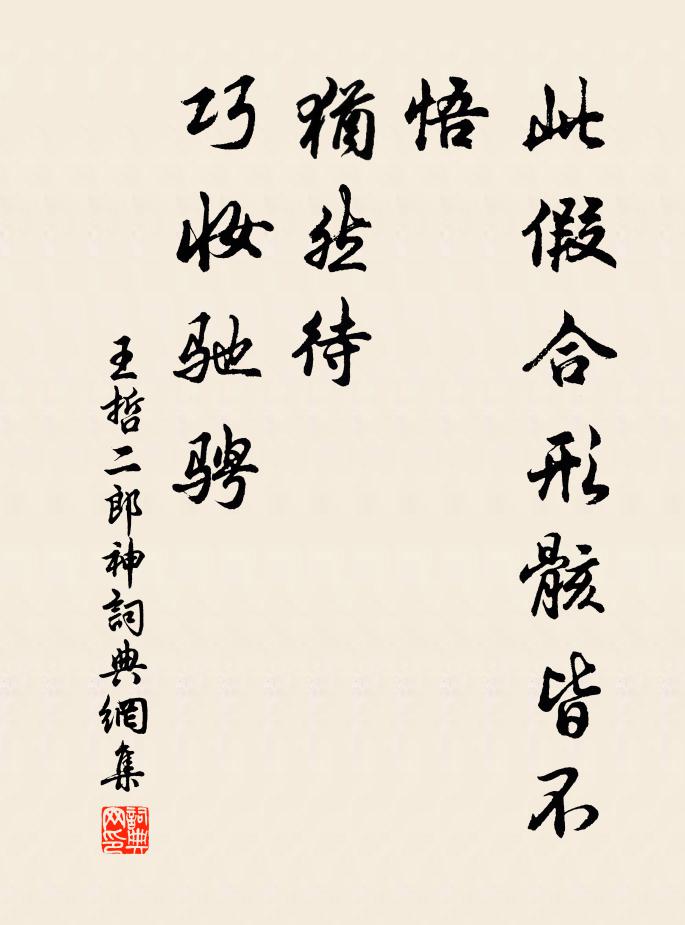 此假合形骸皆不
悟
猶然待
巧妝驰骋
王哲二郎神詞典網集
詞典
网印